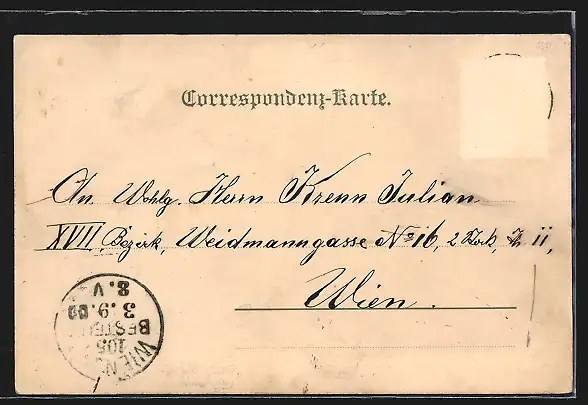 Correspondenz-Karte.
An Wohlg. Herrn Krenn Julian
XVII. Bezirk, Weidmanngasse No 16, 2 Stock, Th 11,
Wien.
WIEN
105
BESTELLT
3.9.00
8.V